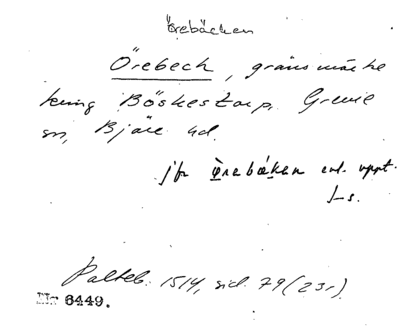 Örebäcken
Örebech, gränsmärke
kring Böskestorp. Grevie
sn, Bjäre hd.
jfr Örebäken enl. uppt.
Palteb. 1514, sid. 79 (23r).
Nr 6449.